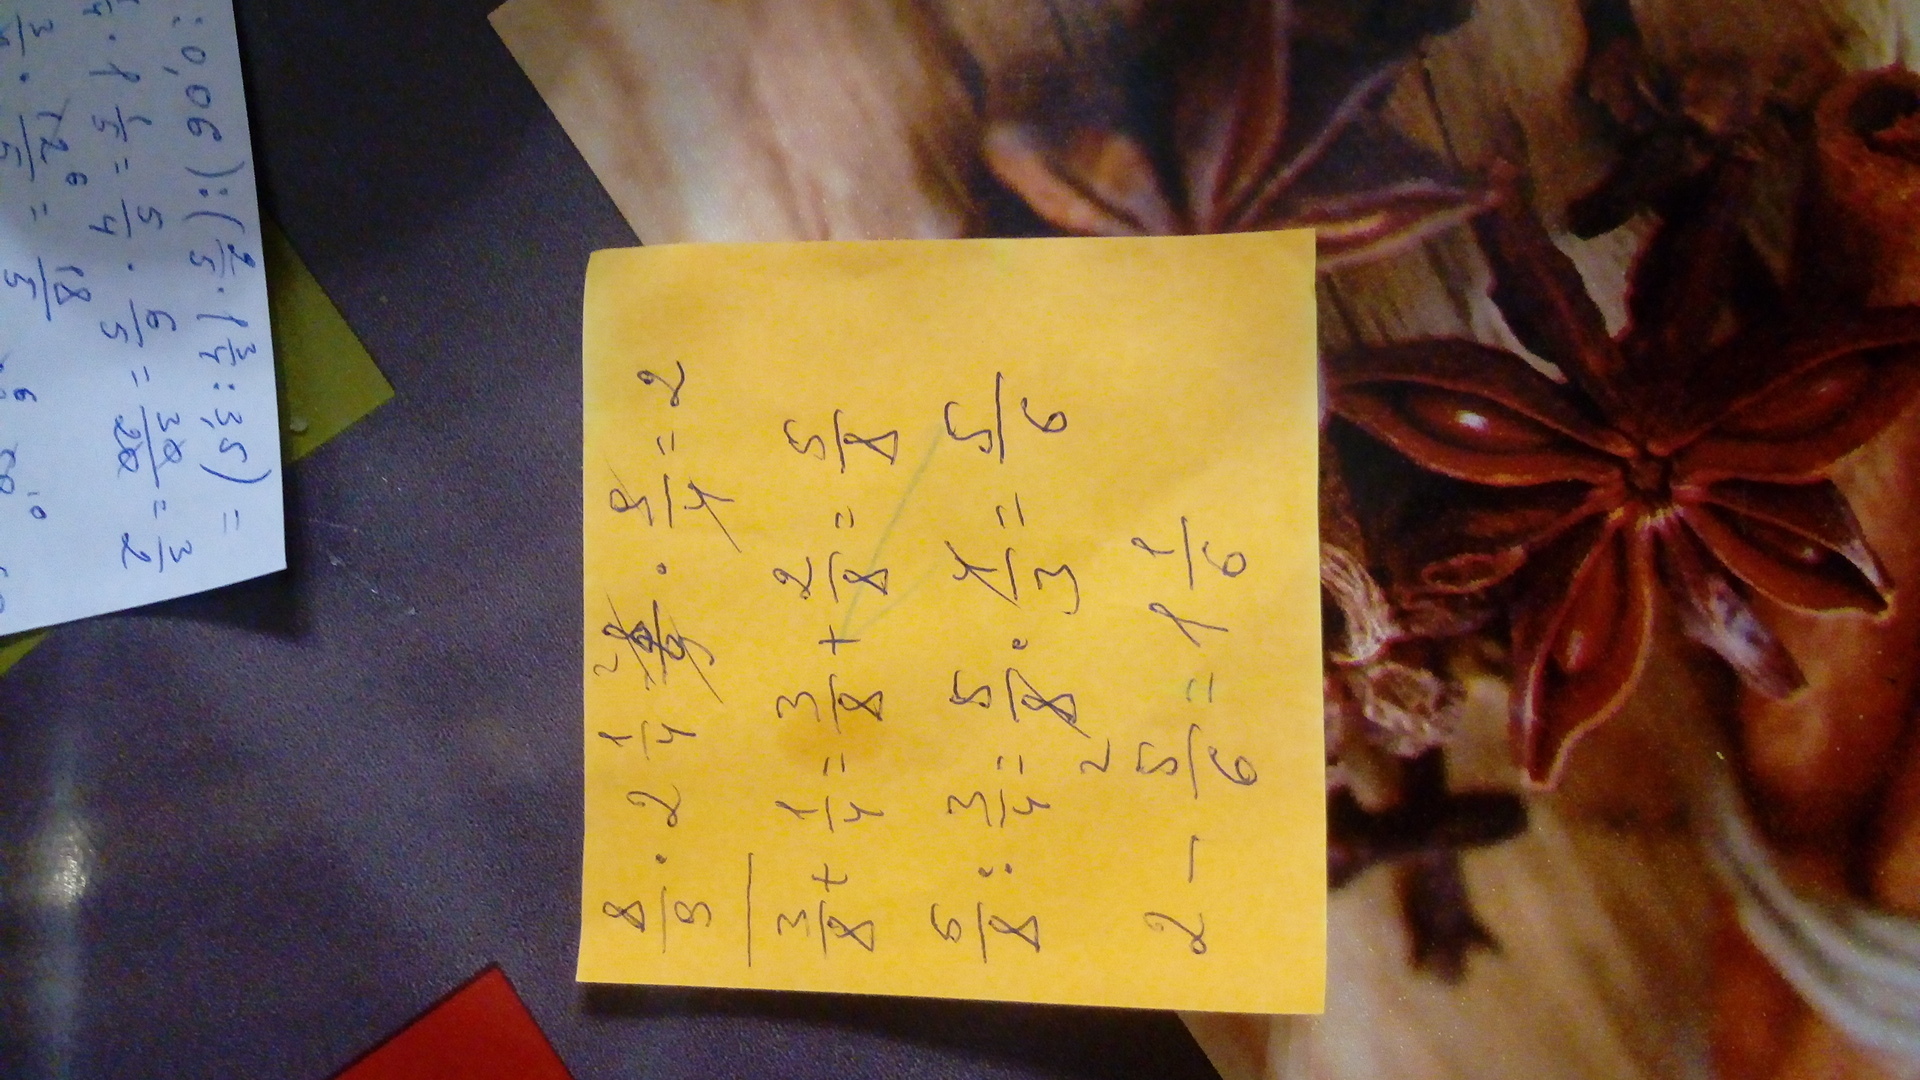 8/9 · 2 1/4 = 8/9 · 9/4 = 2
3/8 + 1/4 = 3/8 + 2/8 = 5/8
5/8 : 3/4 = 5/8 · 4/3 = 5/6
2
2 - 5/6 = 1 1/6
: 0,06) : (2/5 · 1 3/4 : 3,5) =
· 1 1/5 = 5/4 · 6/5 = 30/20 = 3/2
· 12/5 = 18/5